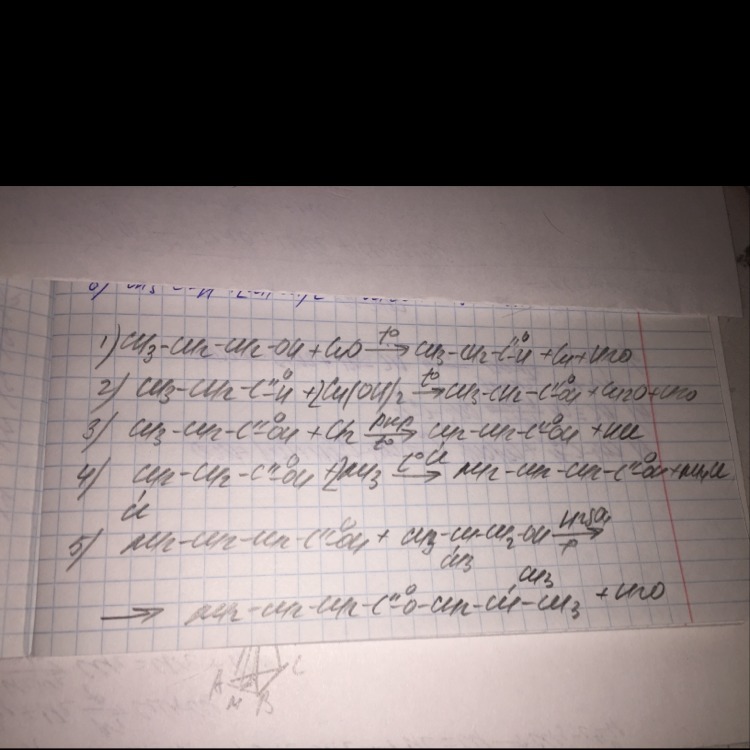 1) CH3-CH2-CH2-OH + CuO t° → CH3-CH2-C=O-H + Cu + H2O
2) CH3-CH2-C=O-H + 2Cu(OH)2 t° → CH3-CH2-C=O-OH + Cu2O + H2O
3) CH3-CH2-C=O-OH + Cl2 t° → CH2-CH2-C=O-OH + HCl
Cl
4) CH2-CH2-C=O-OH + 2NH3 → NH2-CH2-CH2-C=O-OH + NH4Cl
Cl
5) NH2-CH2-CH2-C=O-OH + CH3-CH-CH2-OH H2SO4 →
CH3
CH3
→ NH2-CH2-CH2-C=O-O-CH2-CH-CH3 + H2O
A C
M B